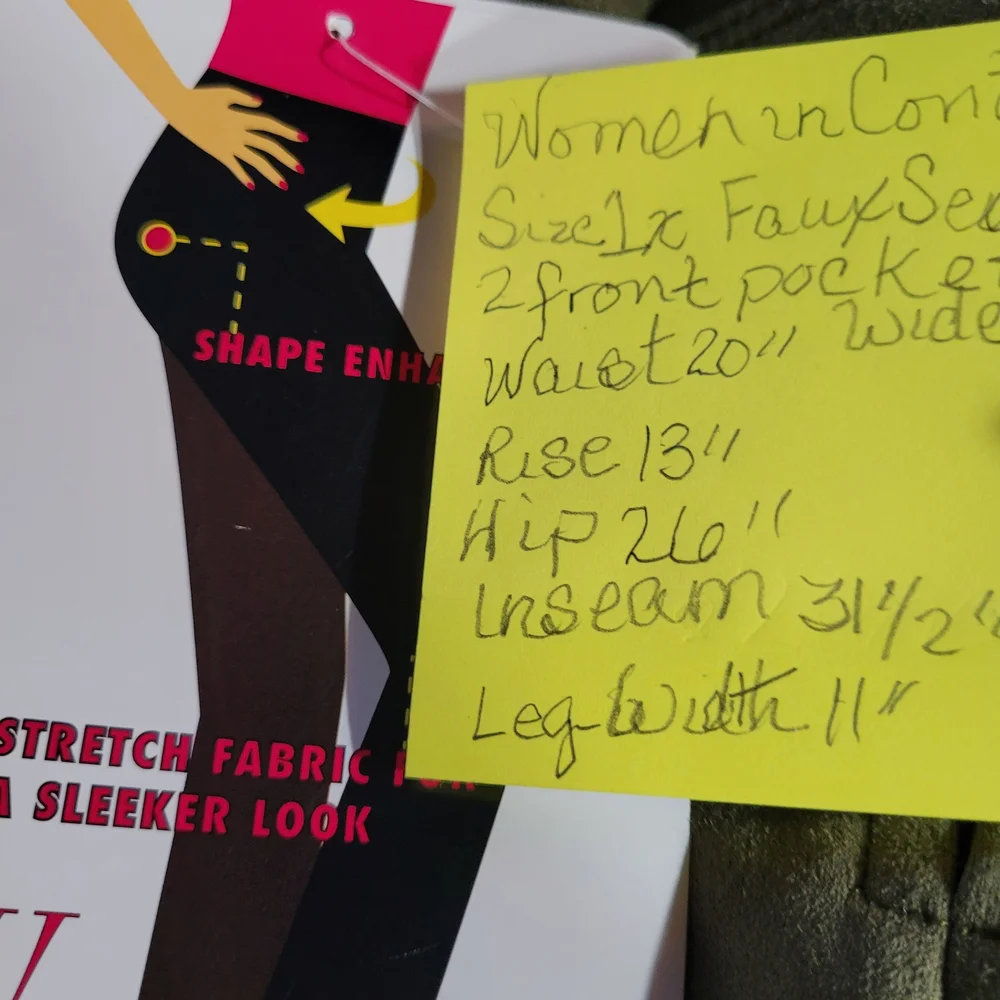 Women in Cont
Size 1x Faux Sed
2 front pocket
Waist 20" Wide
Rise 13"
Hip 26"
Inseam 31 1/2"
Leg Width 11"
SHAPE ENHA
STRETCH FABRIC FOR
A SLEEKER LOOK